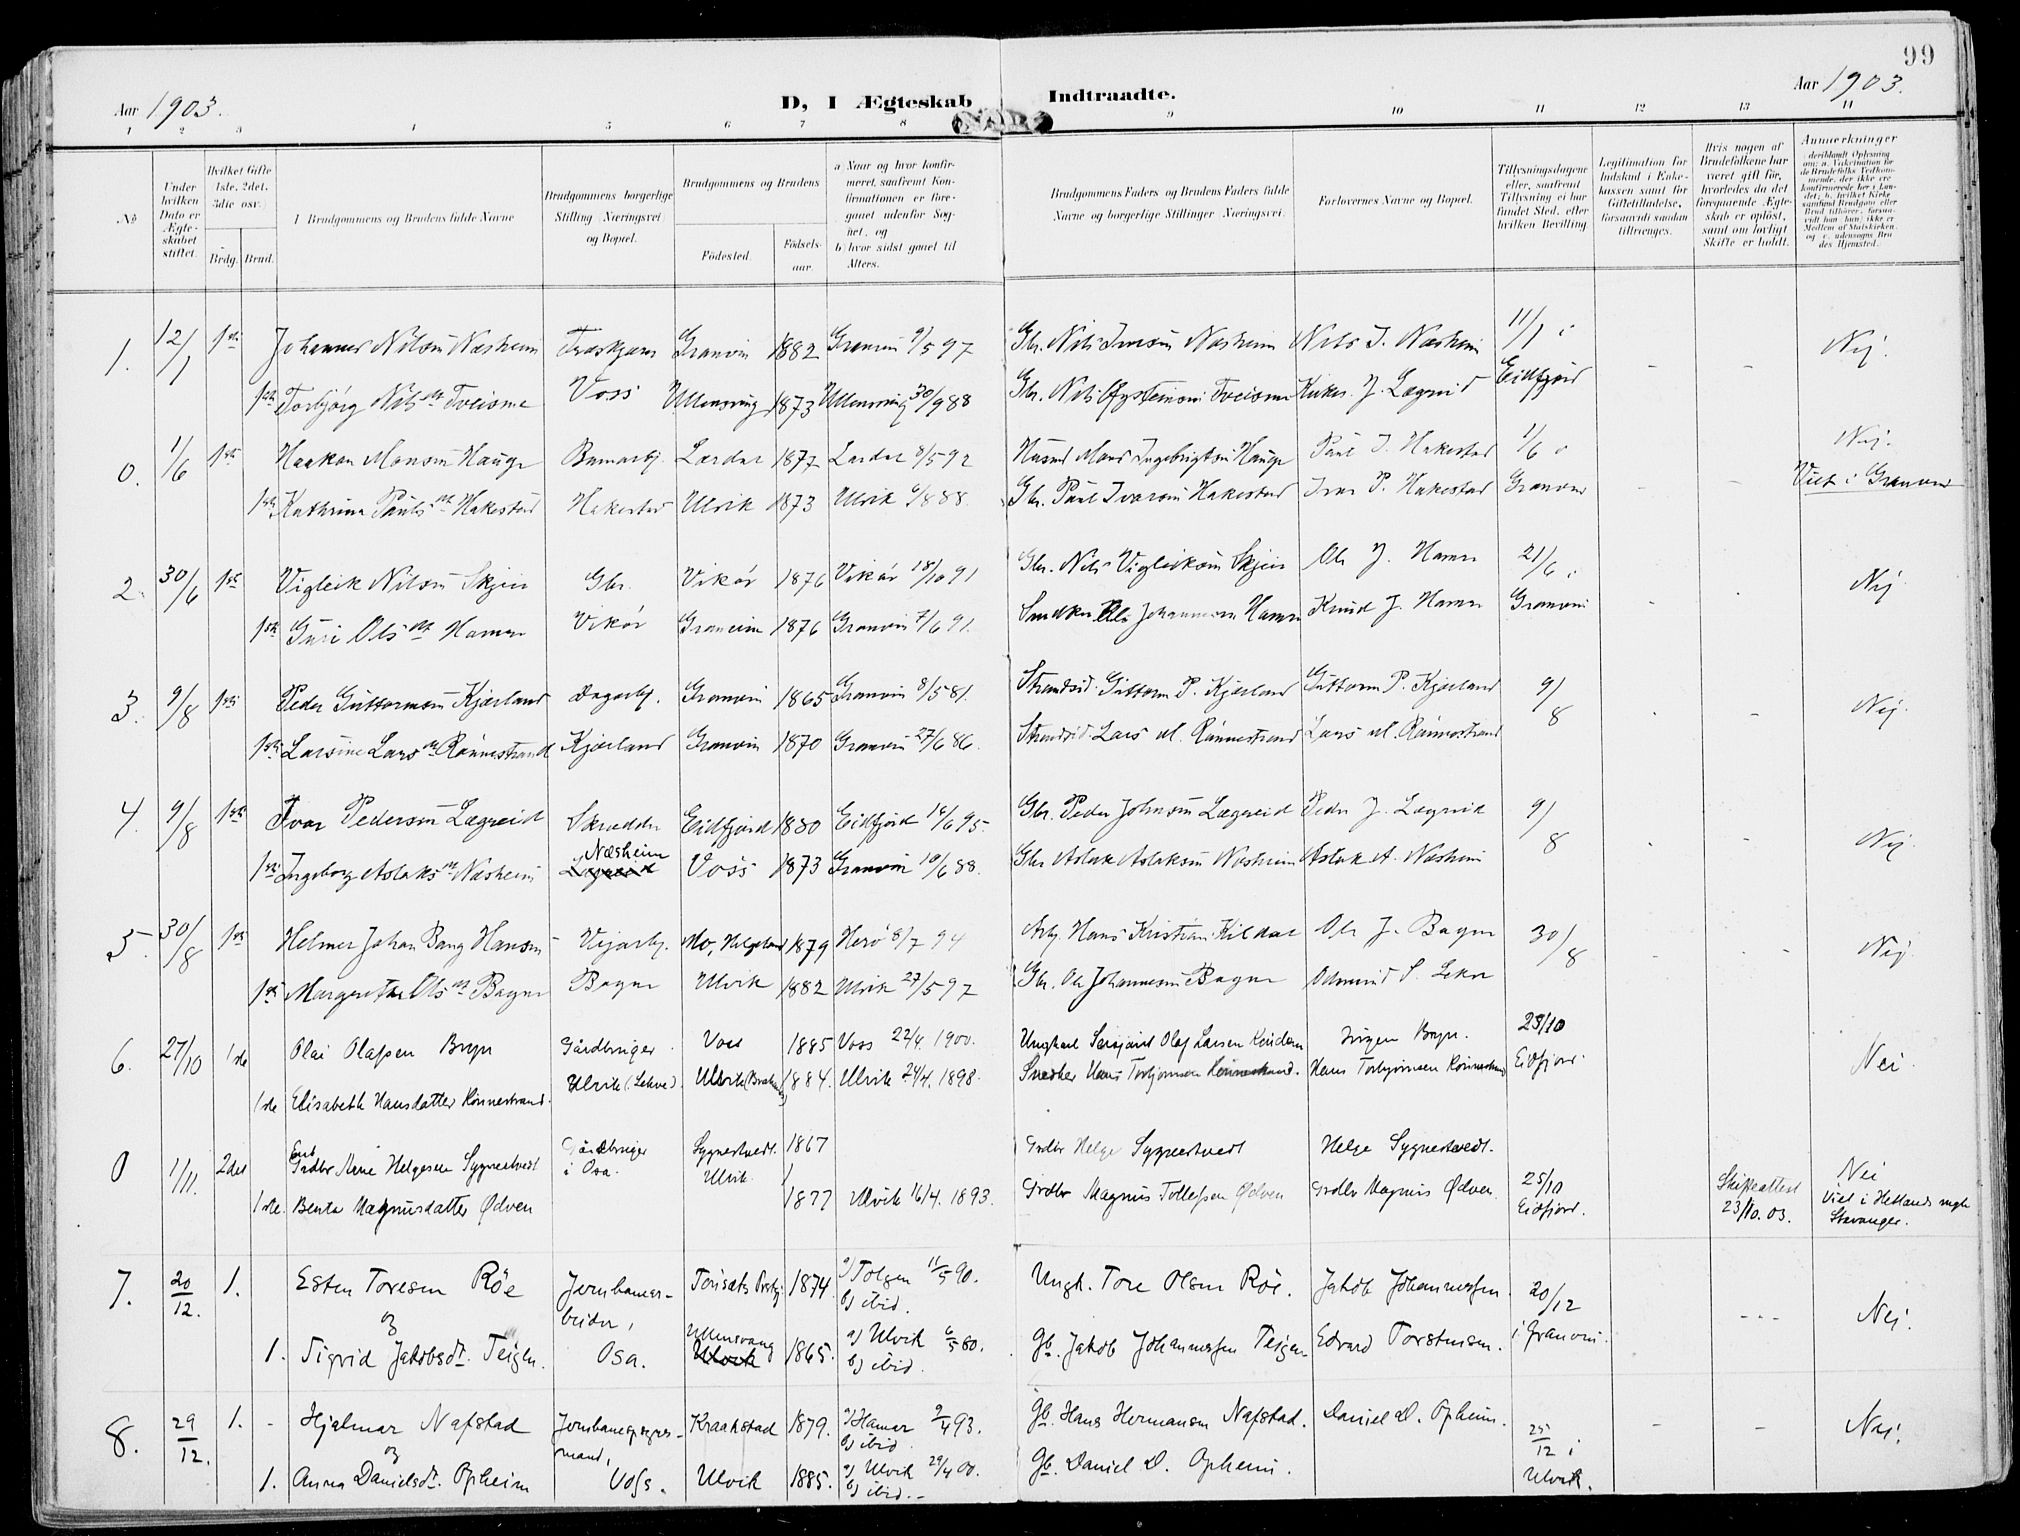 99
Aar 1903.
D, I Ægteskab Indtraadte.
Aar 1903.
1 2 3 4 5 6 7 8 9 10 11 12 13 14
No
Under hvilken Dato er Ægteskabet stiftet.
Hvilket Gifte 1ste, 2det, 3die osv.
Brdg. Brud.
Brudgommens og Brudens fulde Navne
Brudgommens borgerlige Stilling (Næringsvei) og Bopæl.
Brudgommens og Brudens
Fødested. Fødselsaar.
a) Naar og hvor konfirmeret, saafremt Konfirmationen er foregaaet udenfor Sognet, og
b) hvor sidst gaaet til Alters.
Brudgommens Faders og Brudens Faders fulde Navne og borgerlige Stillinger (Næringsvei).
Forlovernes Navne og Bopæl.
Tillysningsdagene eller, saafremt Tillysning ei har fundet Sted, efter hvilken Bevilling
Legitimation for Indskud i Enkekassen samt for Giftetilladelse, forsaavidt saadan tiltrænges.
Hvis nogen af Brudefolkene har været gift før, hvorledes da det foregaaende Ægteskab er opløst, samt om lovligt Skifte er holdt.
Anmærkninger
1. 12/1 1ste Johannes Nilsen Næsheim Granvin 1882 Granvin 9/5 97 Gbr. Nils Iversen Næsheim Nils I. Næsheim 11/1 i Nej.
1ste Torbjörg Nilsdtr Tveisme Voss Ullensvang 1873 Ullensvang 30/9 88 Gbr. Nils Øysteinsen Tveisme J. Lægreid Eidfjord
0. 1/6 1ste Haakon Monsen Hauge Lærdal 1877 Lærdal 8/5 92 Husmd Mons Ingebrigtsen Hauge Paul I. Hakestad 1/6 i Nej.
1ste Kathrina Paulsdtr Hakestad Hakestad Ulvik 1873 Ulvik 6/8 88. Gbr. Paul Ivarsen Hakestad Ivar P. Hakestad Granvin Viet i Granvin
2. 30/6 1ste Vigleik Nilsen Skjeie Gbr. Vikör 1876 Vikör 18/10 91 Gbr. Nils Vigleiksen Skjeie Ole J. Hamre 21/6 i Nej
1ste Guri Olsdtr Hamre Vikör Granvin 1876 Granvin 7/6 91. Ole Johannesen Hamre Knud J. Hamre Granvin
3. 9/8 1ste Peder Guttormsen Kjærland Dagarb. Granvin 1865 Granvin 8/5 81. Strandsid. Guttorm P. Kjærland Guttorm P. Kjærland 9/8 Nej.
1ste Larsine Larsdtr Rönnestrand Kjærland Granvin 1870 Granvin 27/6 86. Strandsid Lars M. Rönnestrand Lars M. Rönnestrand
4. 9/8 1ste Ivar Pedersen Lægreid Skrædder Eidfjord 1880 Eidfjord 16/6 95. Gbr. Peder Johnsen Lægreid Peder J. Lægreid 9/8 Nej
1ste Ingeborg Aslaksdtr Næsheim Næsheim Voss 1873 Granvin 10/6 88. Gbr Aslak Aslaksen Næsheim Aslak A. Næsheim
5. 30/8 1ste Helmer Johan Bang Hansen Vejarb. Mo, Helgeland 1879 Herö 8/7 94 Arb. Hans Kristian Kildal Ole J. Bagne 30/8 Nej
1ste Margretha Olsdtr Bagne Bagne Ulvik 1882 Ulvik 27/5 97 Gbr. Ole Johannesen Bagne Odmund S. Lekve
6. 27/10 1ste Olai Olafsen Bryn Gårdbruger Voss 1885 Voss 22/4 1900. Ungkarl Olaf Larsen Jörgen Bryn. 25/10 Nei
1ste Elisabeth Hansdatter Rönnestrand. Ulvik (Lekve) Ulvik 1884. Ulvik 24/4. 1898. Snedker Hans Torbjörnsen Rönnestrand. Hans Torbjörnsen Rönnestrand Eidfjord.
0 1/11. 2det Grdbr Arne Helgesen Sygnestvedt Gårdbruger i Osa. Sygnestvedt. Ulvik. 1867 Grdbr Helge Sygnestvedt Helge Sygnestvedt. Nei
1ste. Berta Magnusdatter Ødven 1877 Ulvik 16/4. 1893. Grdbr Magnus Tollefsen Ødven Grdbr Magnus Ødven. 25/10 Eidfjord. Skifteattest 23/10.03. Viet i Hetlands mgh Stavanger.
7. 20/12. 1. Esten Toresen Röe Jernbanearbeider, 1874 a) Tolgen 11/5 90. b) ibid. Ungk. Tore Olsen Röe. Jakob Johannessen 20/12 --- Nei.
og
1. Sigrid Jakobsdt. Teigen. Osa. Ullensvang Ulvik 1865. a) Ulvik 6/5 80. b) ibid. Gb. Jakob Johannessen Teigen Edvard Torsteinsen. i Granvin.
8. 29/12. 1. - Hjalmar Nafstad Kraakstad 1879. a) Hamar 2/4 93. b) ibid. Gb. Hans Hermansen Nafstad. Daniel D. Opheim. 25/12 i - - Nei.
og
1. Anna Danielsdt. Opheim Voss. Ulvik 1885. a) Ulvik 29/4 00. b) ibid. Gb. Daniel D. Opheim. Ulvik.